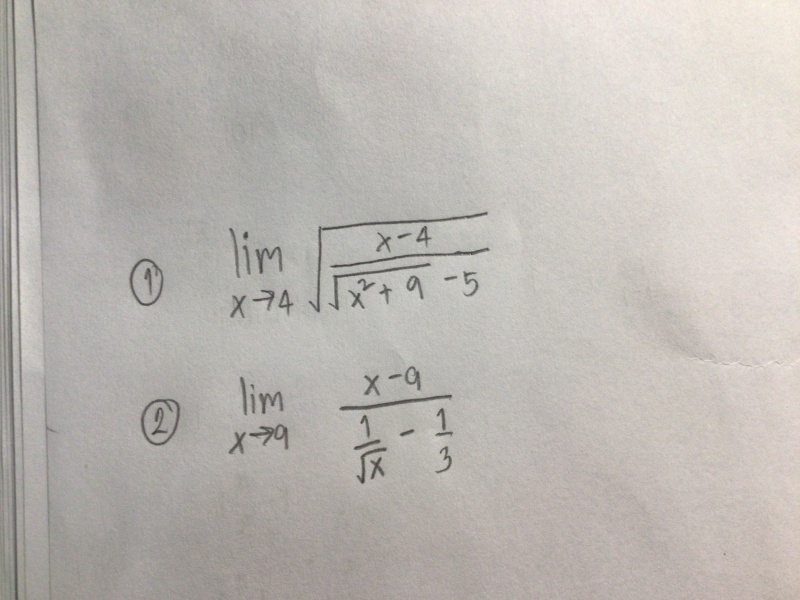 ① lim x→4 √((x-4)/(√(x²+9) -5))
② lim x→9 (x-9)/(1/√x - 1/3)